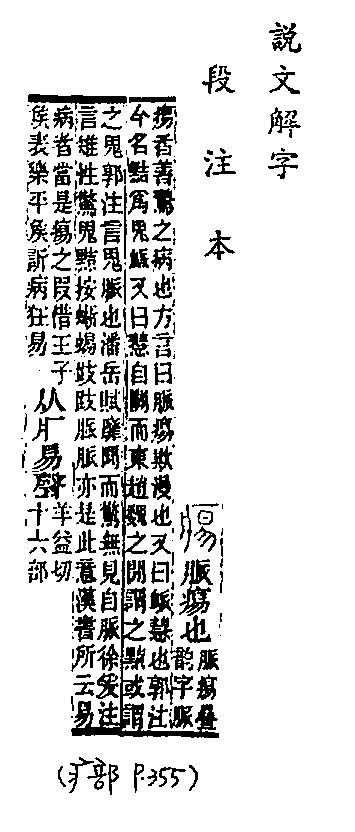 說文解字
段注本
痬 脈痬也 脈痬疊
韵字脈
痬者善驚之病也方言曰脈痬欺謾也又曰衇慧也郭注
今名黠爲鬼衇又曰慧自關而東趙魏之閒謂之黠或謂
之鬼郭注言鬼脈也潘岳賦靡聞而驚無見自脈徐爰注
言雄性驚鬼黠按蜥蜴跂跂脈脈亦是此意漢書所云易
病者當是痬之叚借王子
侯表樂平侯訢病狂易
从疒易聲
羊益切
十六部
(疒部 P.355)